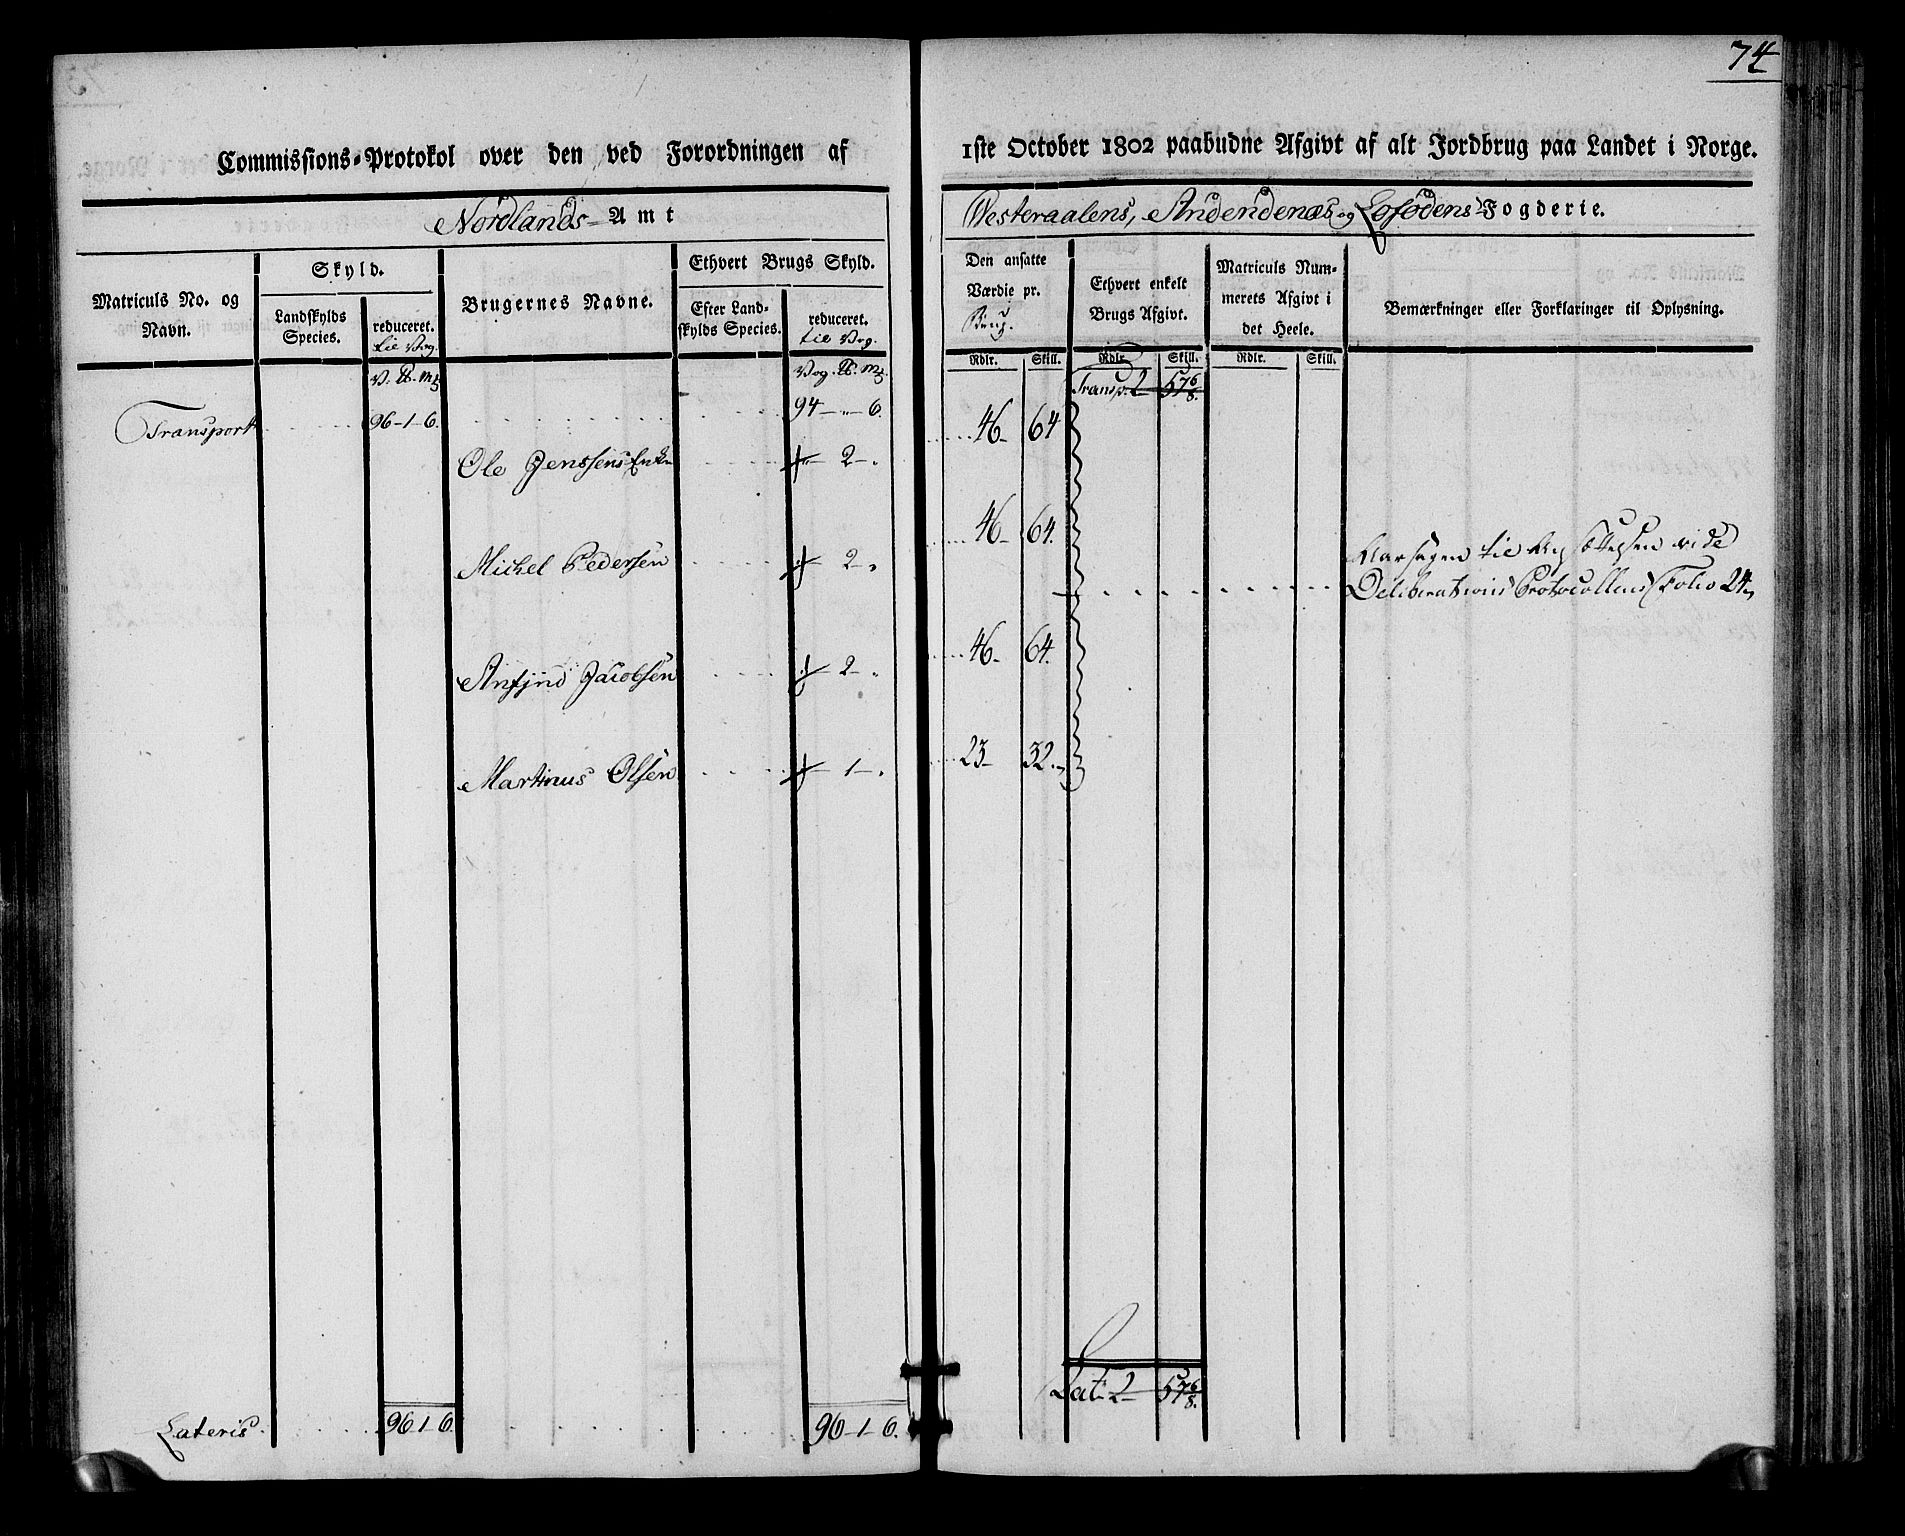 74
Commissions-Protokol over den ved Forordningen af
1ste October 1802 paabudne Afgivt af alt Jordbrug paa Landet i Norge.
Nordlands Amt
Westeraalens, Andendenæs og Lofodens Fogderie.
Matriculs No. og Navn.
Skyld.
Landskylds Species.
reduceret. til Vog.
Brugernes Navne.
Ethvert Brugs Skyld.
Efter Landskylds Species.
reduceret. til Vog.
Den ansatte Værdie pr. Brug.
Rdlr. Skill.
Ethvert enkelt Brugs Afgivt.
Rdlr. Skill.
Matriculs Nummerets Afgivt i det Heele.
Rdlr. Skill.
Bemærkninger eller Forklaringer til Oplysning.
V. ℔. m
Vog. ℔. m
Transp. 2 - 57 6/8.
Transport 96-1-6. 94-"-6.
Ole Jenssens Enke 2-. 46- 64
Michel Pedersen 2-. 46- 64.
til vide
Deliberations Protocollens Folio 24
Anfind Jacobsen 2-. 46- 64.
Martinus Olsen 1-. 23- 32.
Lat. 2 - 57 6/8.
Lateris 96 1 6. 96-1-6.